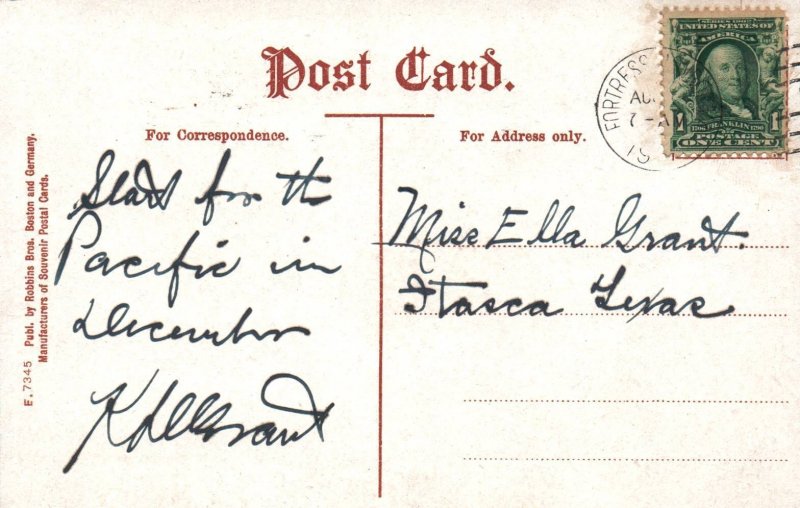 Post Card.
For Correspondence.
For Address only.
SERIES 1902
UNITED STATES OF
AMERICA
FORTRESS
AU
7-AM
19
1706 FRANKLIN 1790
1 POSTAGE 1
ONE CENT
Start for the
Pacific in
December
Grant
Miss Ella Grant.
Itasca Texas
E. 7345 Publ. by Robbins Bros. Boston and Germany.
Manufacturers of Souvenir Postal Cards.